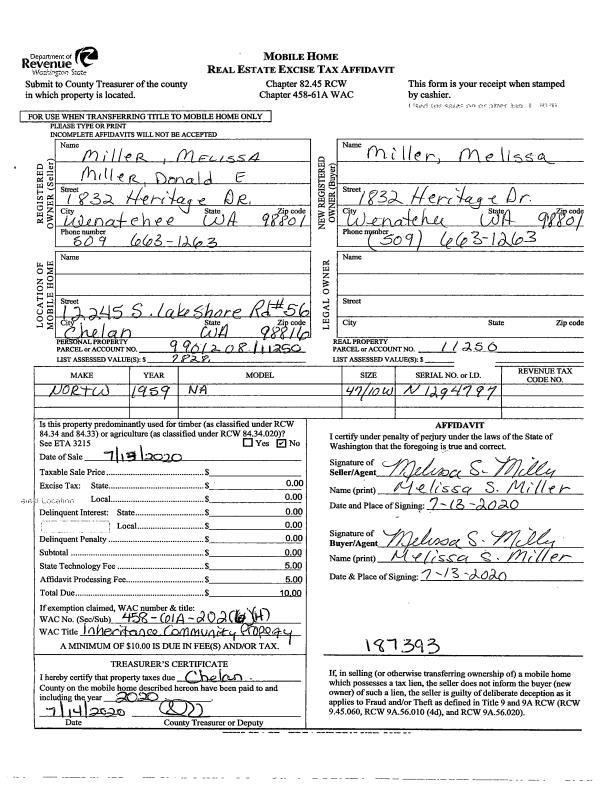 Department of
Revenue
Washington State
MOBILE HOME
REAL ESTATE EXCISE TAX AFFIDAVIT
Submit to County Treasurer of the county
in which property is located.
Chapter 82.45 RCW
Chapter 458-61A WAC
This form is your receipt when stamped
by cashier.
FOR USE WHEN TRANSFERRING TITLE TO MOBILE HOME ONLY
PLEASE TYPE OR PRINT
INCOMPLETE AFFIDAVITS WILL NOT BE ACCEPTED
REGISTERED OWNER (Seller)
Name
Miller, MELISSA
Miller, Donald E
Street
1832 Heritage DR.
City State Zip code
Wenatchee WA 98801
Phone number
509 663-1263
NEW REGISTERED OWNER (Buyer)
Name
Miller, Melissa
Street
1832 Heritage Dr.
City State Zip code
Wenatchee WA 98801
Phone number
(509) 663-1263
LOCATION OF MOBILE HOME
Name
Street
12245 S. Lakeshore Rd #56
City State Zip code
Chelan WA 98816
PERSONAL PROPERTY
PARCEL or ACCOUNT NO. 9901208111250
LIST ASSESSED VALUE(S): $ 7828
LEGAL OWNER
Name
Street
City State Zip code
REAL PROPERTY
PARCEL or ACCOUNT NO. 11250
LIST ASSESSED VALUE(S): $
MAKE YEAR MODEL SIZE SERIAL NO. or I.D. REVENUE TAX CODE NO.
NORTW 1959 NA 47/10W N1294797
Is this property predominantly used for timber (as classified under RCW
84.34 and 84.33) or agriculture (as classified under RCW 84.34.020)?
See ETA 3215 Yes No
Date of Sale 7/13/2020
Taxable Sale Price $
Excise Tax: State $ 0.00
Local $ 0.00
Delinquent Interest: State $ 0.00
Local $ 0.00
Delinquent Penalty $ 0.00
Subtotal $ 0.00
State Technology Fee $ 5.00
Affidavit Processing Fee $ 5.00
Total Due $ 10.00
If exemption claimed, WAC number & title:
WAC No. (Sec/Sub) 458-61A-202(6)(H)
WAC Title Inheritance Community Property
A MINIMUM OF $10.00 IS DUE IN FEE(S) AND/OR TAX.
TREASURER'S CERTIFICATE
I hereby certify that property taxes due Chelan
County on the mobile home described hereon have been paid to and
including the year 2020
7/14/2020
Date County Treasurer or Deputy
AFFIDAVIT
I certify under penalty of perjury under the laws of the State of
Washington that the foregoing is true and correct.
Signature of
Seller/Agent Melissa S. Miller
Name (print) Melissa S. Miller
Date and Place of Signing: 7-13-2020
Signature of
Buyer/Agent Melissa S. Miller
Name (print) Melissa S. Miller
Date & Place of Signing: 7-13-2020
187393
If, in selling (or otherwise transferring ownership of) a mobile home
which possesses a tax lien, the seller does not inform the buyer (new
owner) of such a lien, the seller is guilty of deliberate deception as it
applies to Fraud and/or Theft as defined in Title 9 and 9A RCW (RCW
9.45.060, RCW 9A.56.010 (4d), and RCW 9A.56.020).